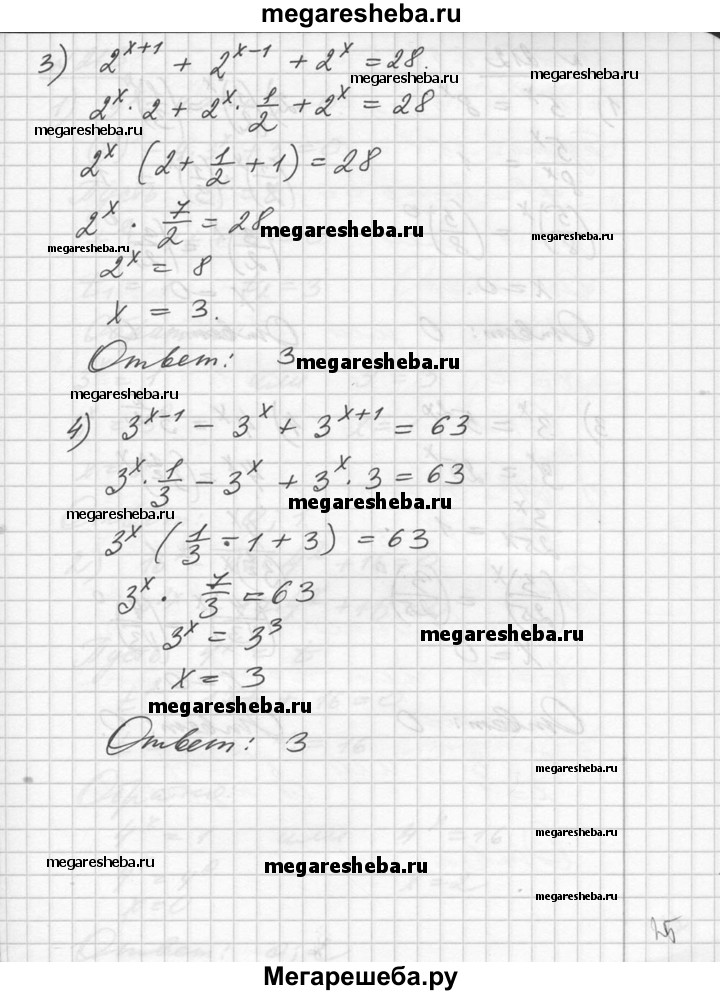 megaresheba.ru
3) 2^{x+1} + 2^{x-1} + 2^x = 28.
megaresheba.ru
2^x · 2 + 2^x · 1/2 + 2^x = 28
megaresheba.ru
2^x (2 + 1/2 + 1) = 28
2^x · 7/2 = 28
megaresheba.ru
megaresheba.ru
megaresheba.ru
2^x = 8
x = 3.
Ответ: 3
megaresheba.ru
megaresheba.ru
4) 3^{x-1} - 3^x + 3^{x+1} = 63
3^x · 1/3 - 3^x + 3^x · 3 = 63
megaresheba.ru
megaresheba.ru
3^x (1/3 - 1 + 3) = 63
3^x · 7/3 = 63
3^x = 3^3
megaresheba.ru
x = 3
megaresheba.ru
Ответ: 3
megaresheba.ru
megaresheba.ru
megaresheba.ru
megaresheba.ru
Мегарешеба.ру